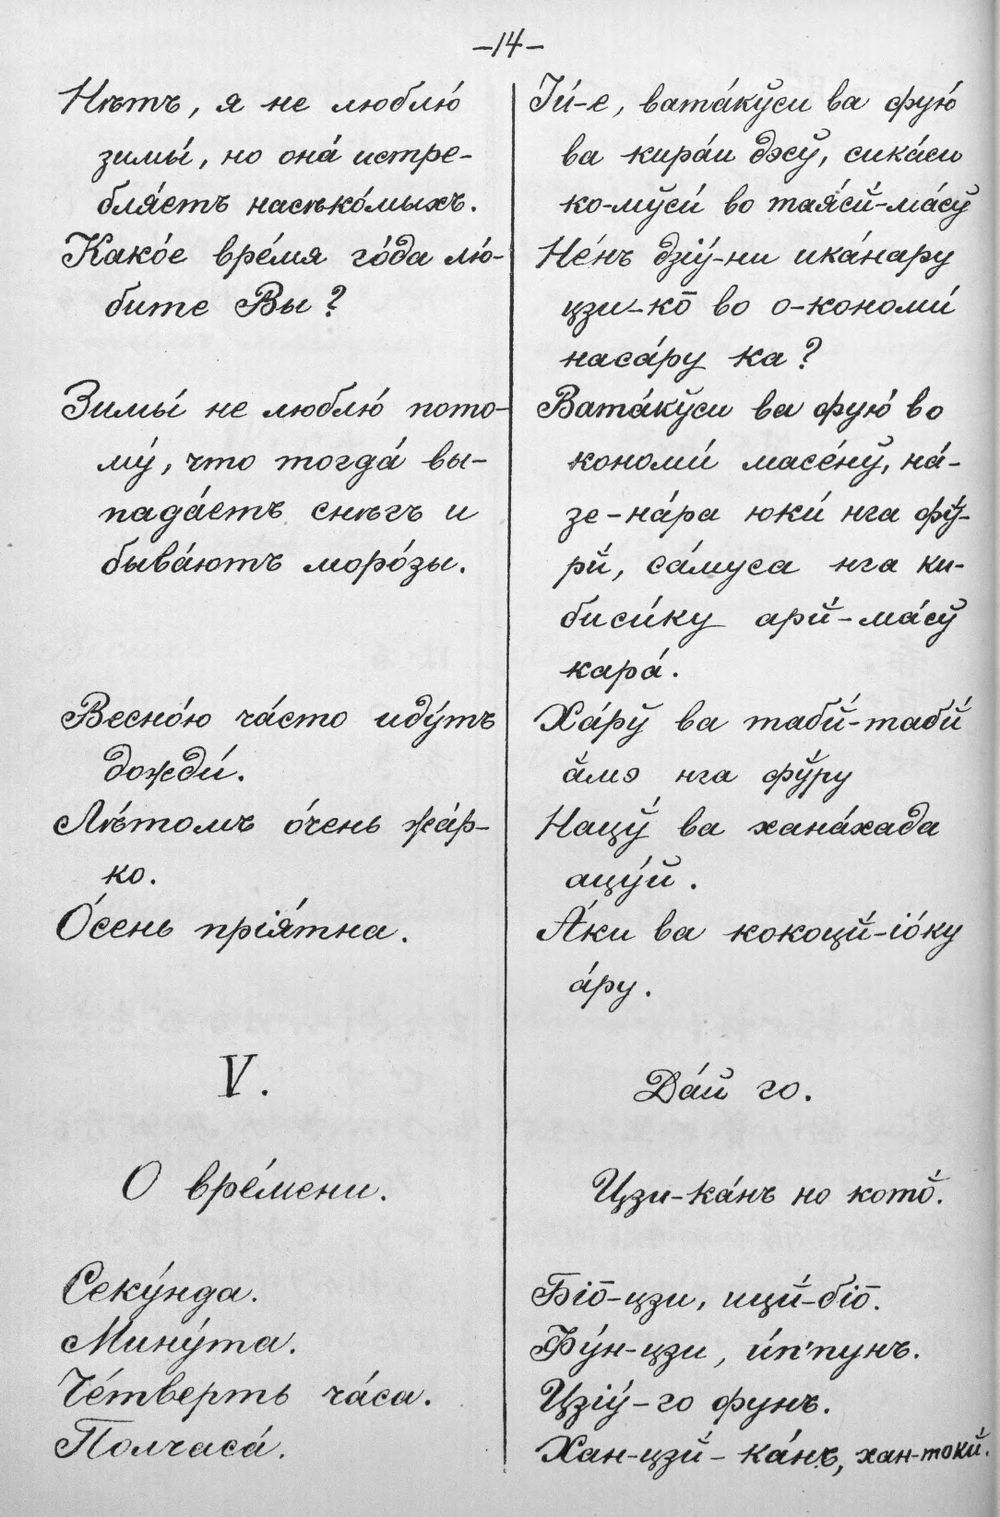 –14–
Нѣтъ, я не люблю́
зимы́, но она́ истре-
бля́етъ насѣко́мыхъ.
Како́е вре́мя го́да лю́-
бите Вы?
Зимы́ не люблю́ пото-
му́, что тогда́ вы-
пада́етъ снѣгъ и
быва́ютъ моро́зы.
Весно́ю ча́сто иду́тъ
дожди́.
Лѣ́томъ о́чень жа́р-
ко.
О́сень прія́тна.
V.
О вре́мени.
Секу́нда.
Мину́та.
Че́тверть ча́са.
Полчаса́.
Іи́-е, вата́кўси ва фую́
ва кира́и дэсў, сика́си
ко-мўси́ во тая́сй-ма́сў
Не́нъ дзіу́-ни ика́нару
цзи-ко̄ во о-кономи́
наса́ру ка?
Вата́кўси ва фую́ во
кономи́ масе́нў, на́-
зе-на́ра юки́ нга фў́-
рй, са́муса нга ки-
биси́ку арй-ма́сў
кара́.
Ха́рў ва табй́-табй́
а́мэ нга фў́ру
Нацў́ ва хана́хада
ацу́й.
А́ки ва кокоцй́-іо́ку
а́ру.
Да́й го.
Цзи-ка́нъ но кото̆́.
Біо̄-цзи, ицй́-біо̄.
Фу́н-цзи, и́п'пунъ.
Цзіу́-го фунъ.
Хан-цзй-ка́нъ, хан-токй́.